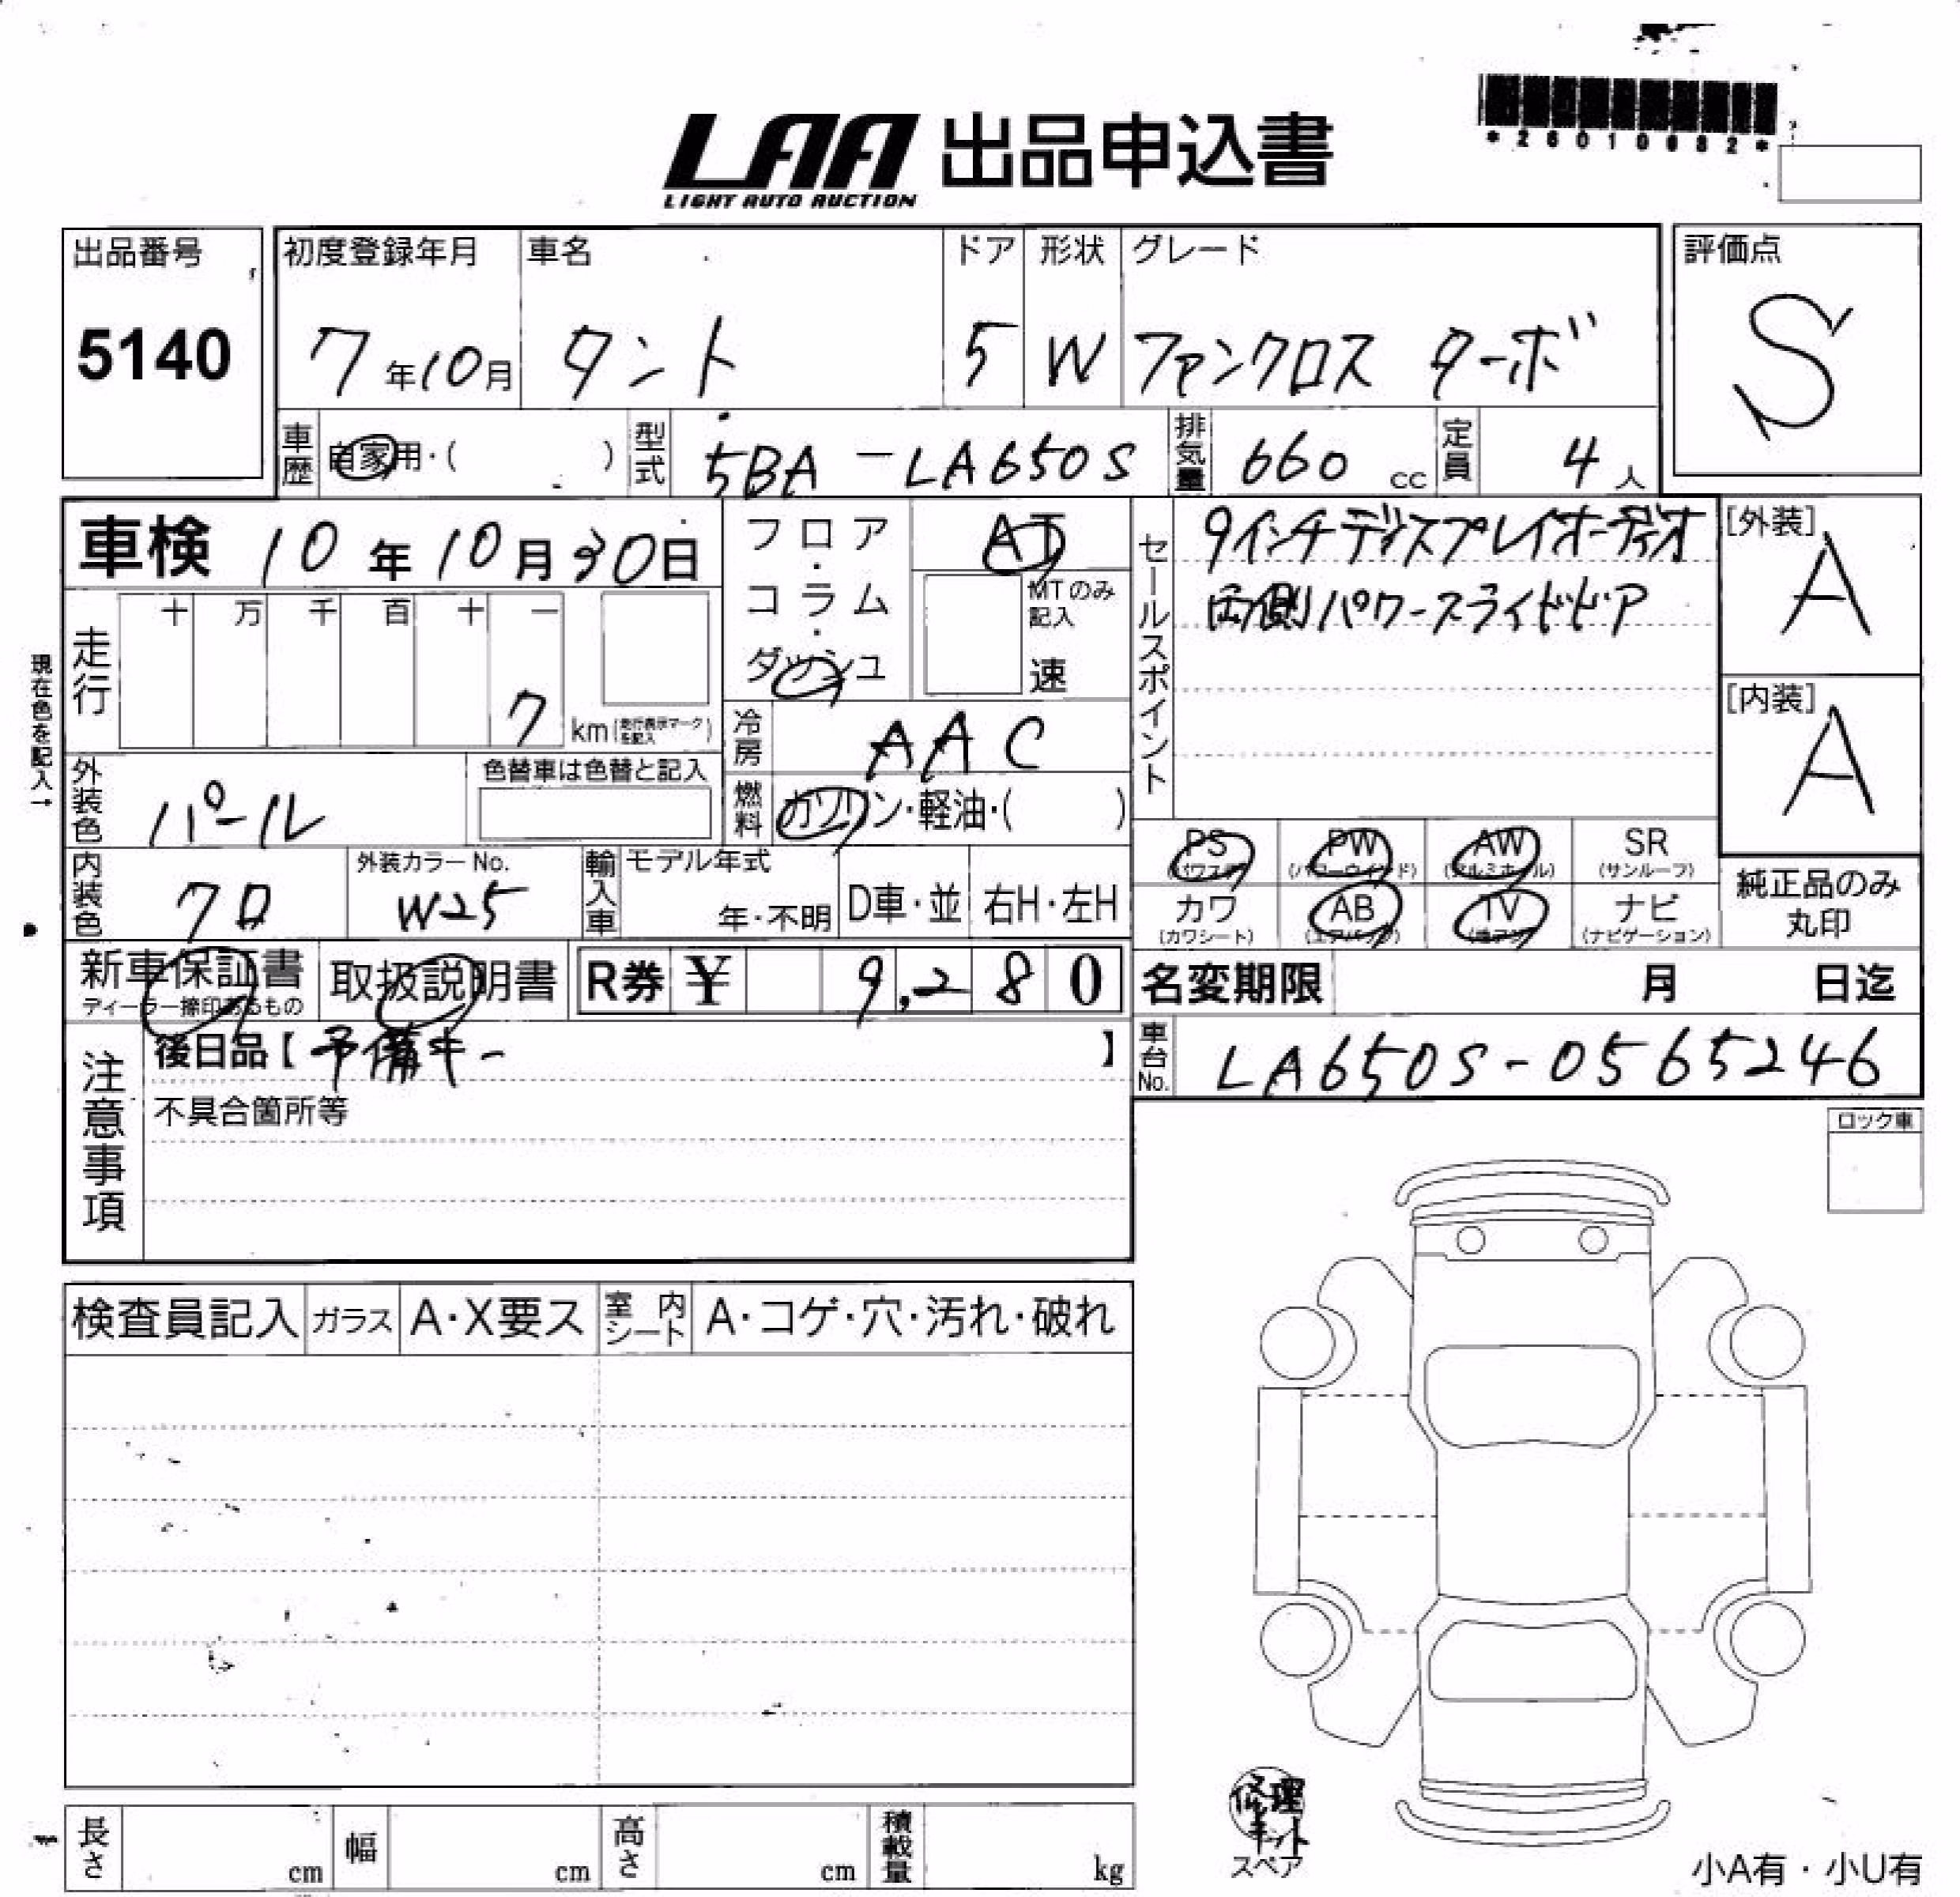 *26010682*
LAA 出品申込書
LIGHT AUTO AUCTION
出品番号 5140
初度登録年月 7年10月
車名 タント
ドア 5
形状 W
グレード ファンクロス ターボ
評価点 S
車歴 自家用・( )
型式 5BA-LA650S
排気量 660 cc
定員 4人
車検 10年10月30日
走行 十 万 千 百 十 一
7 km (走行表示マークを記入)
現在色を記入→
外装色 パール
色替車は色替と記入
内装色 クロ
外装カラーNo. W25
フロア・コラム・ダッシュ
AT
MTのみ記入
速
冷房 AAC
燃料 ガソリン・軽油・( )
輸入車 モデル年式 年・不明 D車・並 右H・左H
セールスポイント
9インチディスプレイオーディオ
両側パワースライドドア
[外装] A
[内装] A
PS (パワステ) PW (パワーウインド) AW (アルミホイル) SR (サンルーフ)
カワ (カワシート) AB (エアバッグ) TV ナビ (ナビゲーション)
純正品のみ丸印
新車保証書
ディーラー捺印あるもの
取扱説明書
R券 ¥ 9,280
名変期限 月 日迄
車台No. LA650S-0565246
注意事項
後日品【予備キー】
不具合箇所等
ロック車
検査員記入 ガラス A・X要ス 室内シート A・コゲ・穴・汚れ・破れ
長さ cm 幅 cm 高さ cm 積載量 kg
修理キット
スペア
小A有・小U有